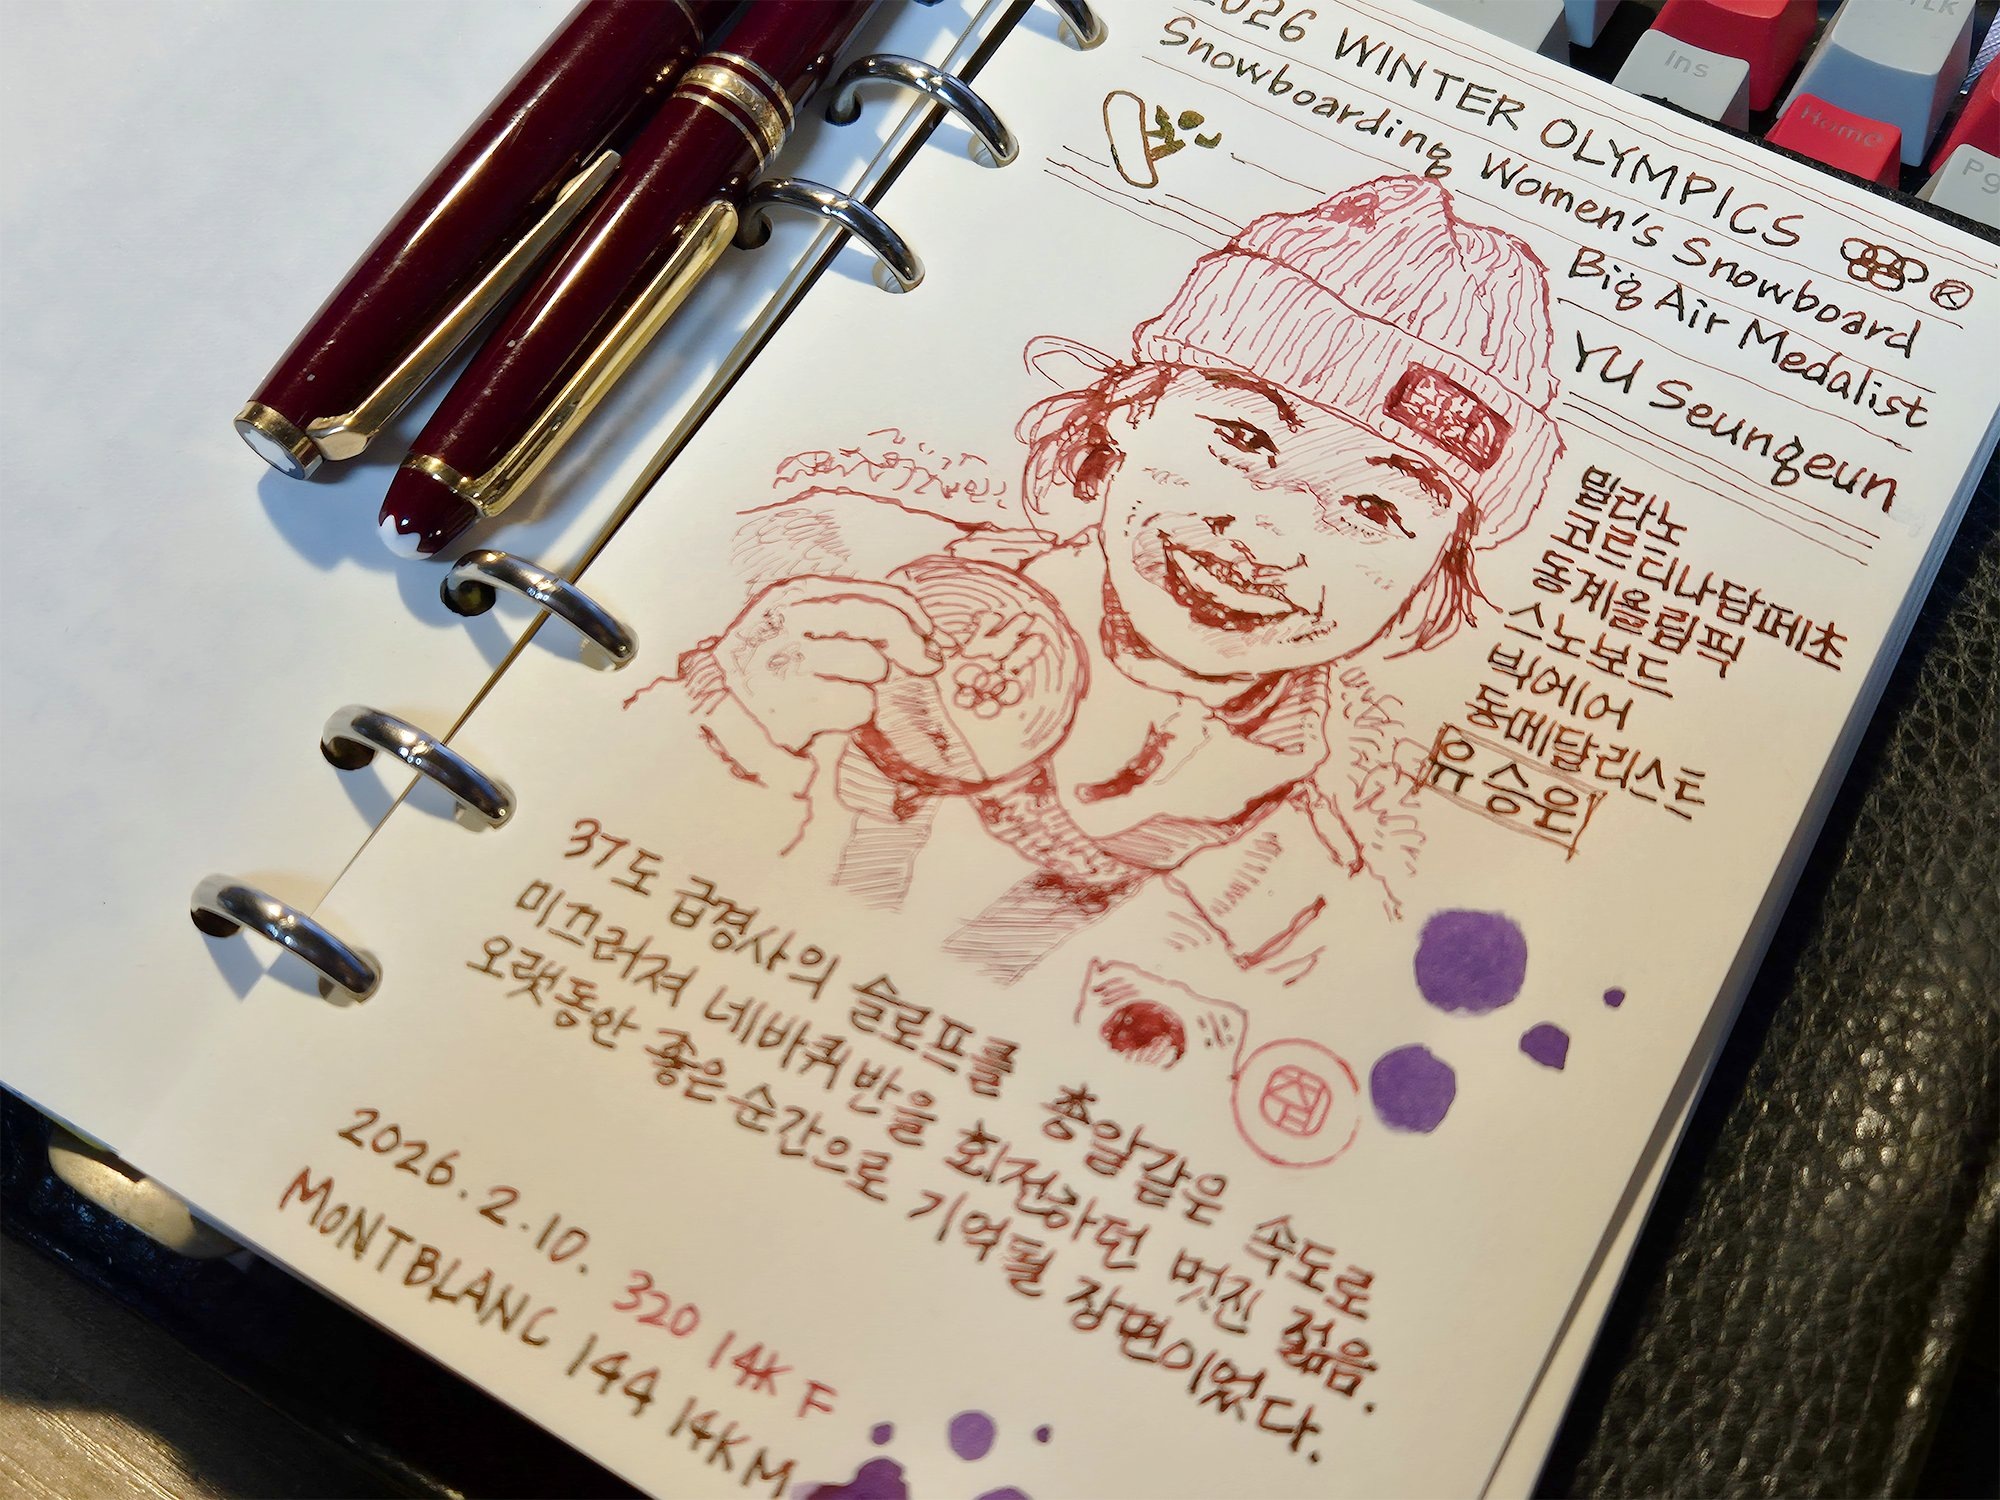 2026 WINTER OLYMPICS ®
Snowboarding Women's Snowboard
Big Air Medalist
YU Seungeun
밀라노
코르티나담페초
동계올림픽
스노보드
빅에어
동메달리스트
유승은
37도 급경사의 슬로프를 총알같은 속도로
미끄러져 네바퀴 반을 회전하던 멋진 젊음.
오랫동안 좋은 순간으로 기억될 장면이었다.
2026.2.10. 320 14K F
MONTBLANC 144 14K M
Ins
Home